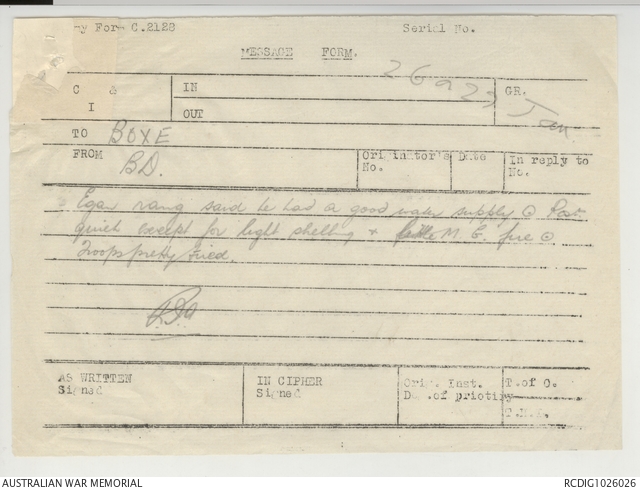 Form C.2128 Serial No.
MESSAGE FORM.
26 a 27 Jan
C & I IN GR.
OUT
TO BOXE
FROM BD. Originator's No. Date In reply to No.
Egar rang said he had a good water supply ⊙ Post
quiet except for light shelling & M.G. fire ⊙
Troops pretty tired.
AS WRITTEN IN CIPHER Orig. Inst. T.of C.
Signed Signed De .of priotity
T.H.I.
AUSTRALIAN WAR MEMORIAL RCDIG1026026